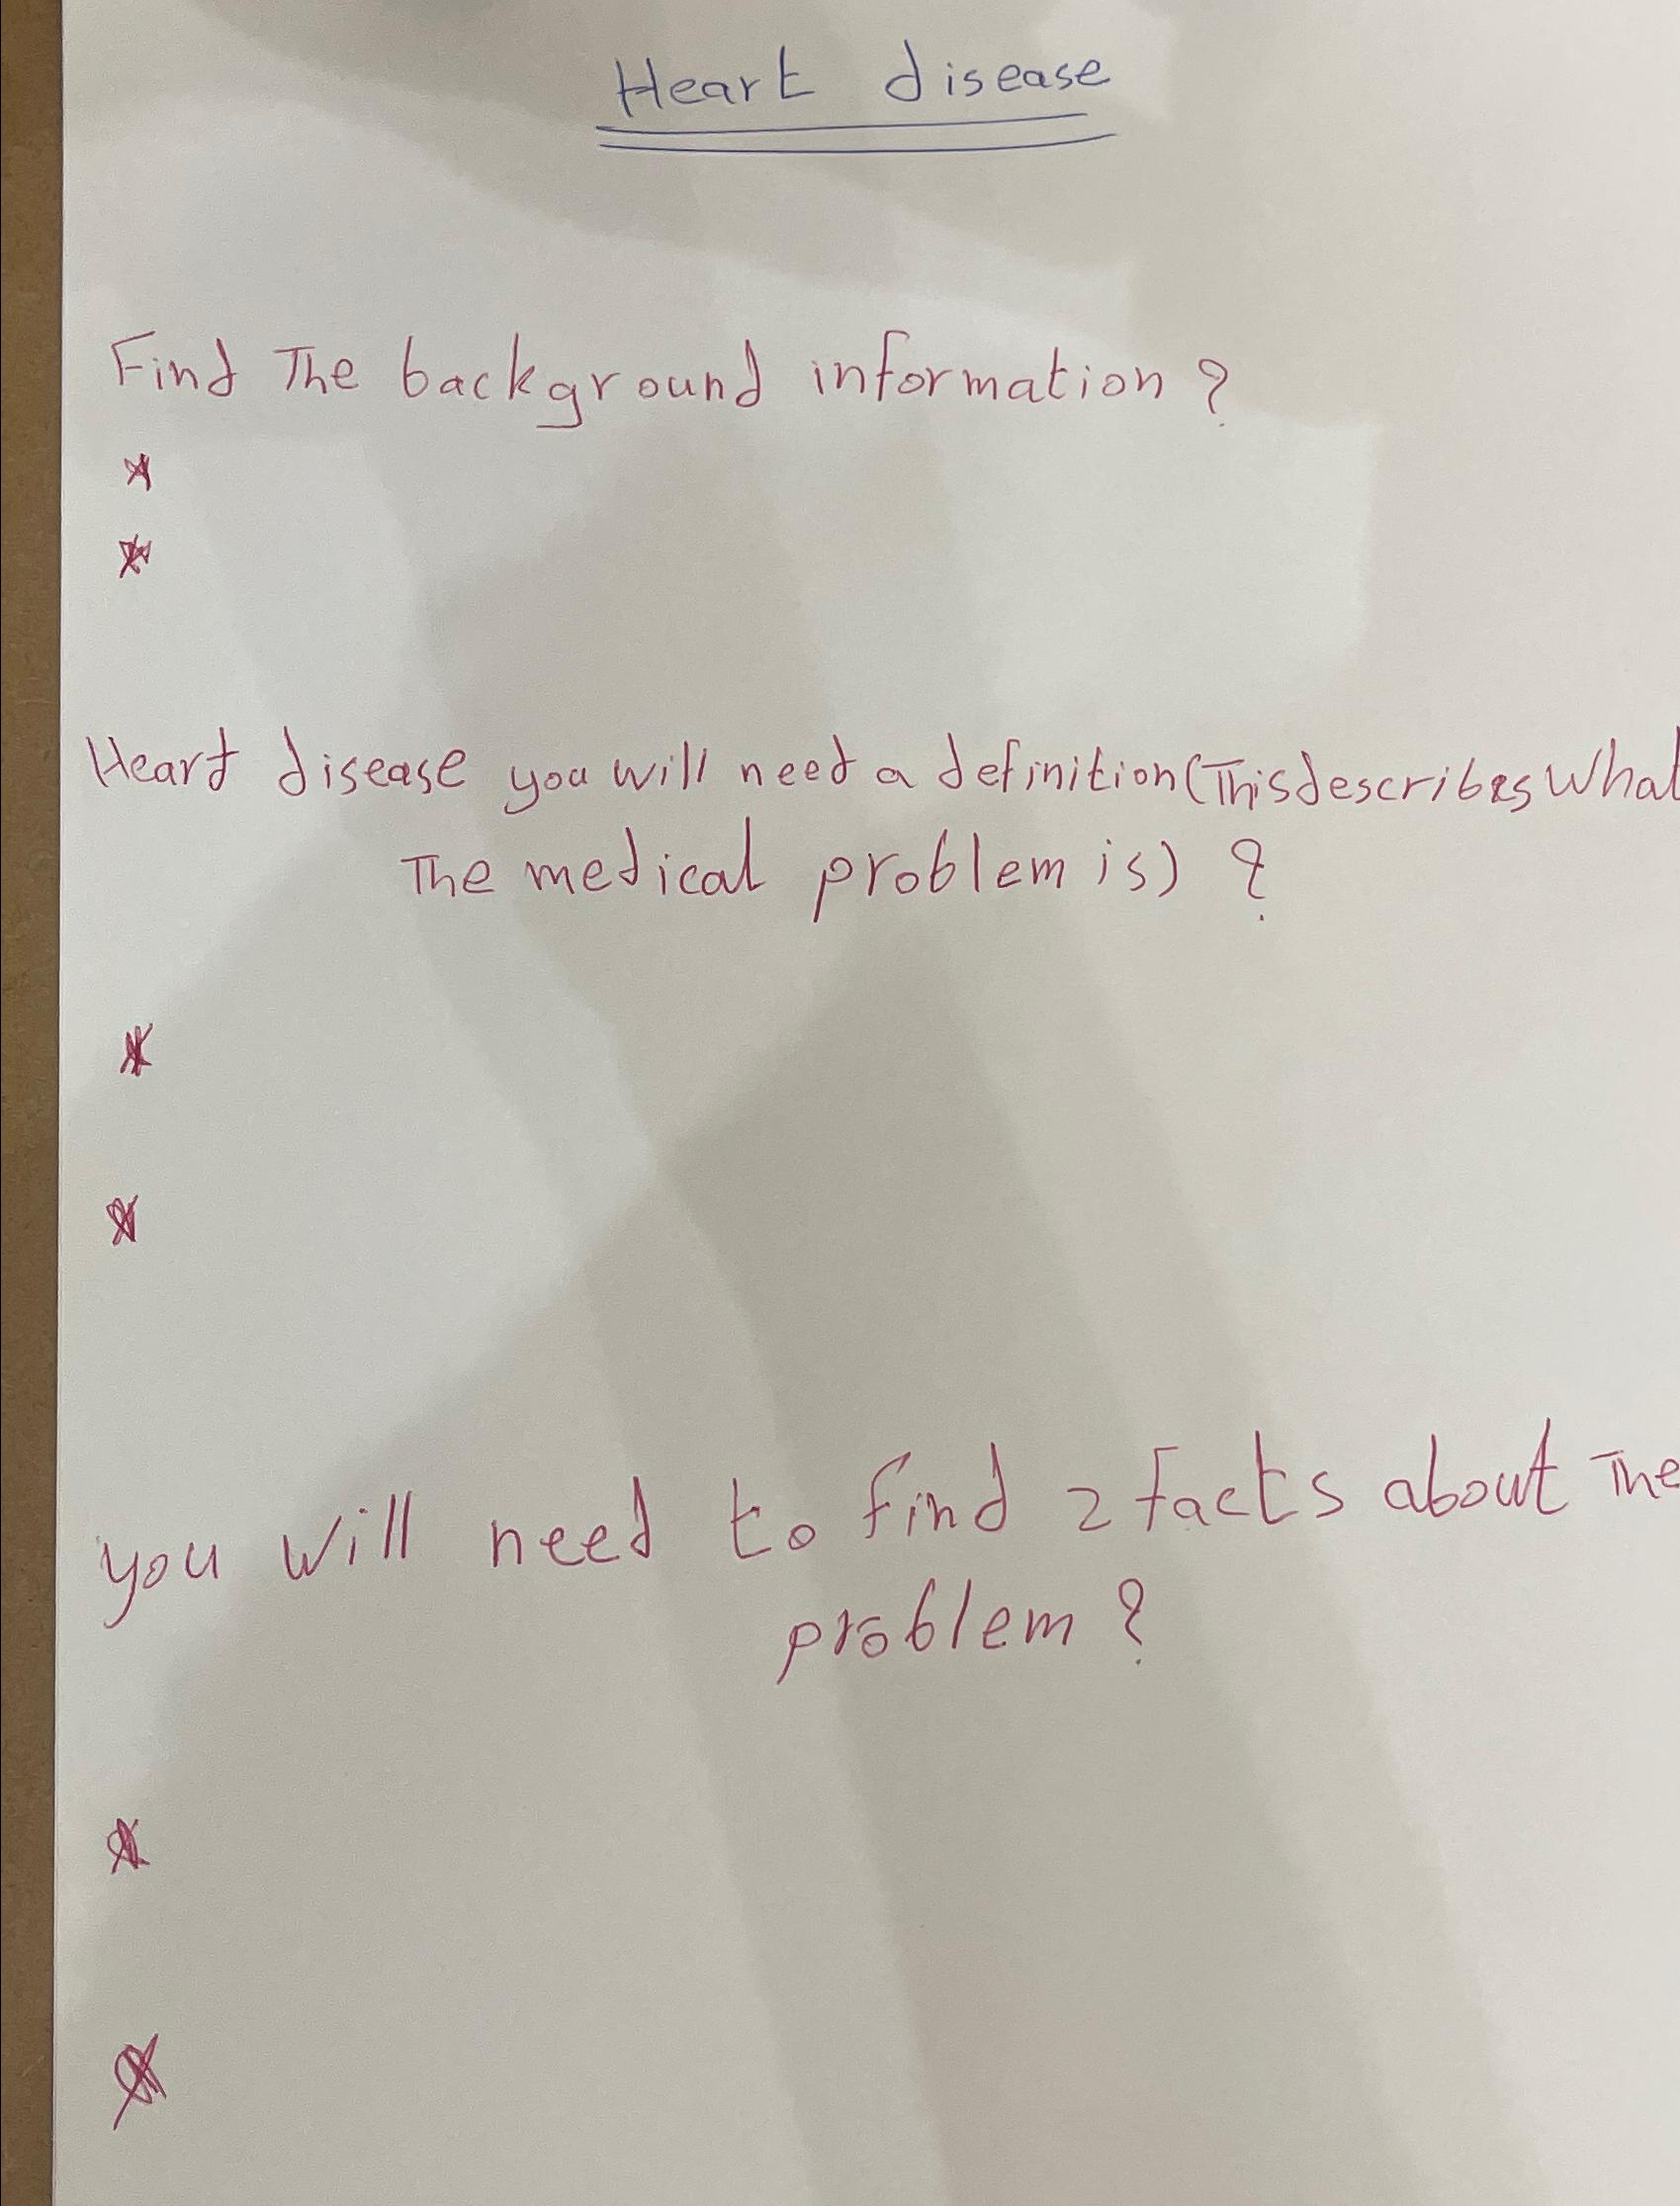 Heart disease
Find The background information?
*
*
Heart disease you will need a definition (This describes What
The medical problem is) ?
*
*
you will need to find 2 facts about The
problem?
*
*